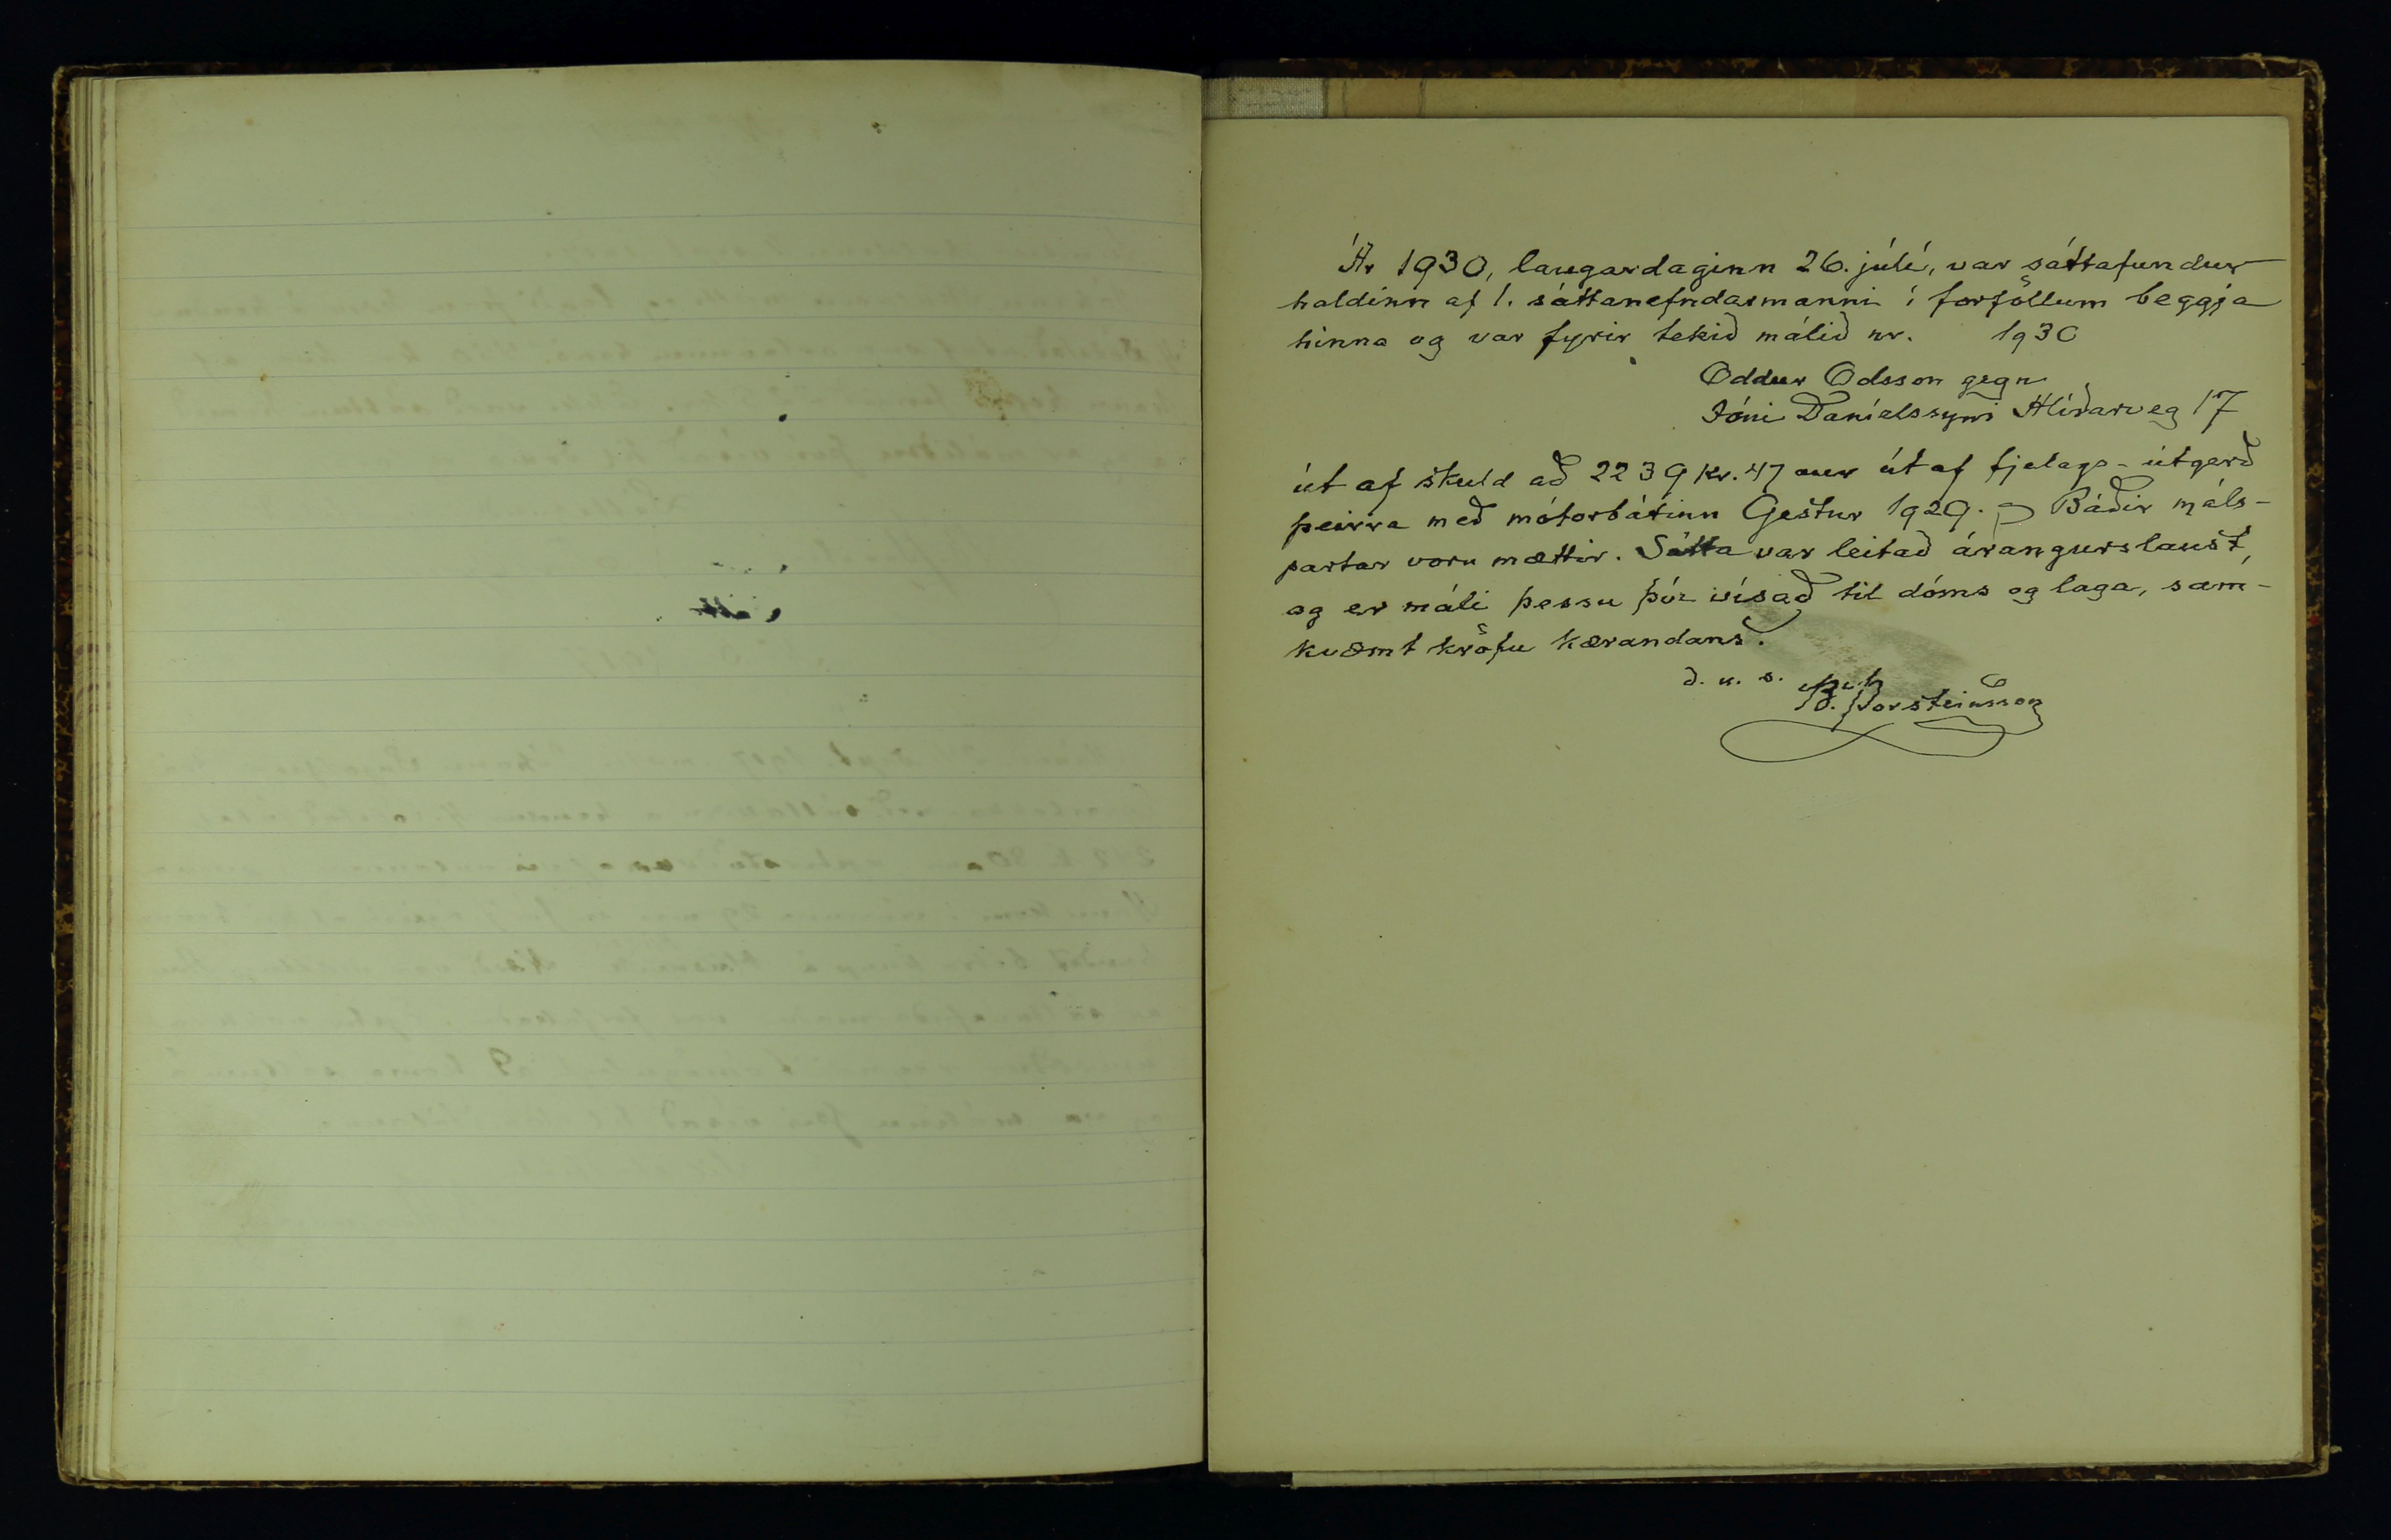 Ár 1930, laugardaginn 26. júlí, var sáttafundur
haldinn af 1. sáttanefndarmanni í forföllum beggja
hinna og var fyrir tekið málið nr. 1930
Oddur Odsson gegn
Jóni Daníelssyni Hlíðarveg 17
út af skuld að 2239 kr. 47 aur út af fjelags-útgerð
þeirra með mótorbátinn Gestur 1929. Báðir máls-
partar voru mættir. Sátta var leitað árangurslaust,
og er máli þessu því vísað til dóms og laga, sam-
kvæmt kröfu kærandans.
d. u. s.
B. Þorsteinsson